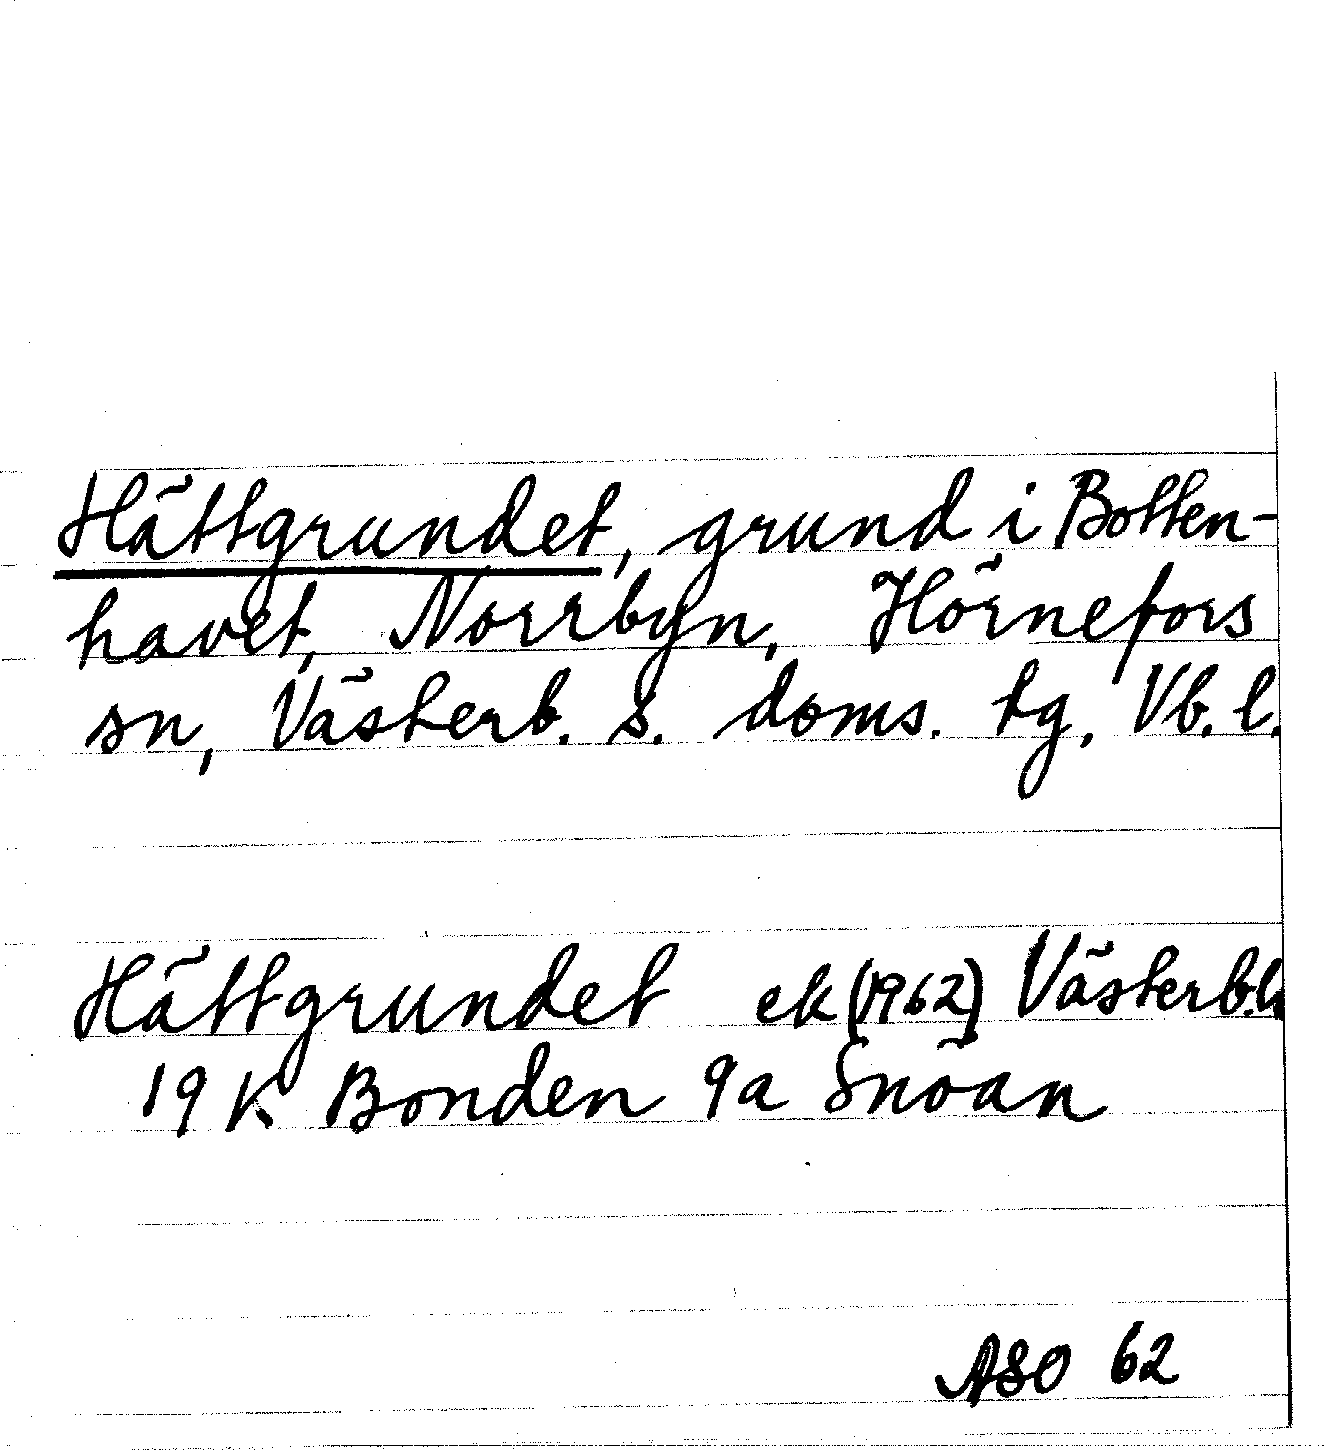 Hättgrundet, grund i Botten-
havet, Norrbyn, Hörnefors
sn, Västerb. s. doms. tg, Vb. l.
Hättgrundet ek (1962) Västerb.l.
19 K Bonden 9a Snöan
ASO 62